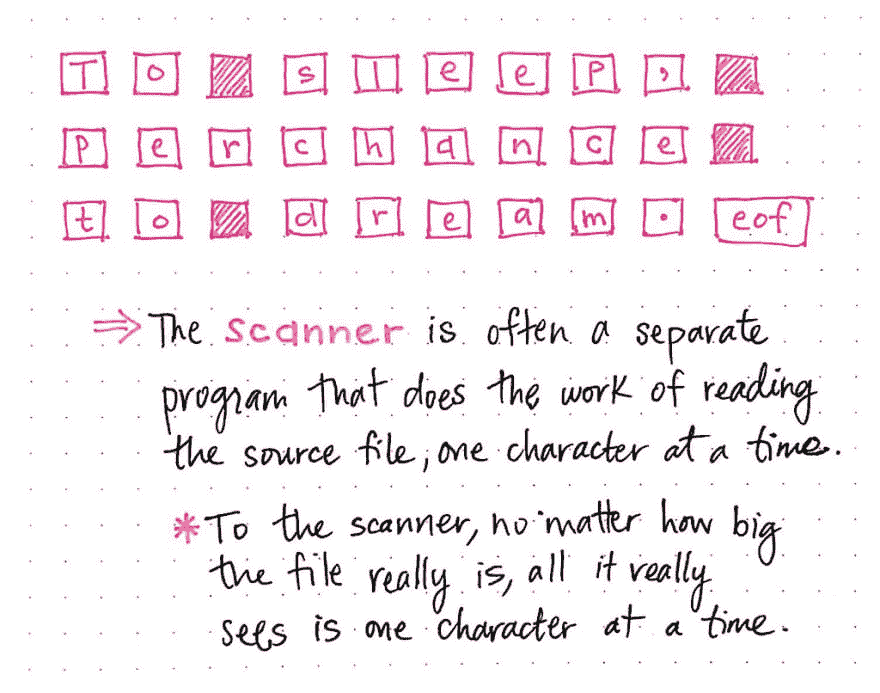 To sleep,
perchance
to dream. eof
⇒ The scanner is often a separate
program that does the work of reading
the source file, one character at a time.
* To the scanner, no matter how big
the file really is, all it really
sees is one character at a time.